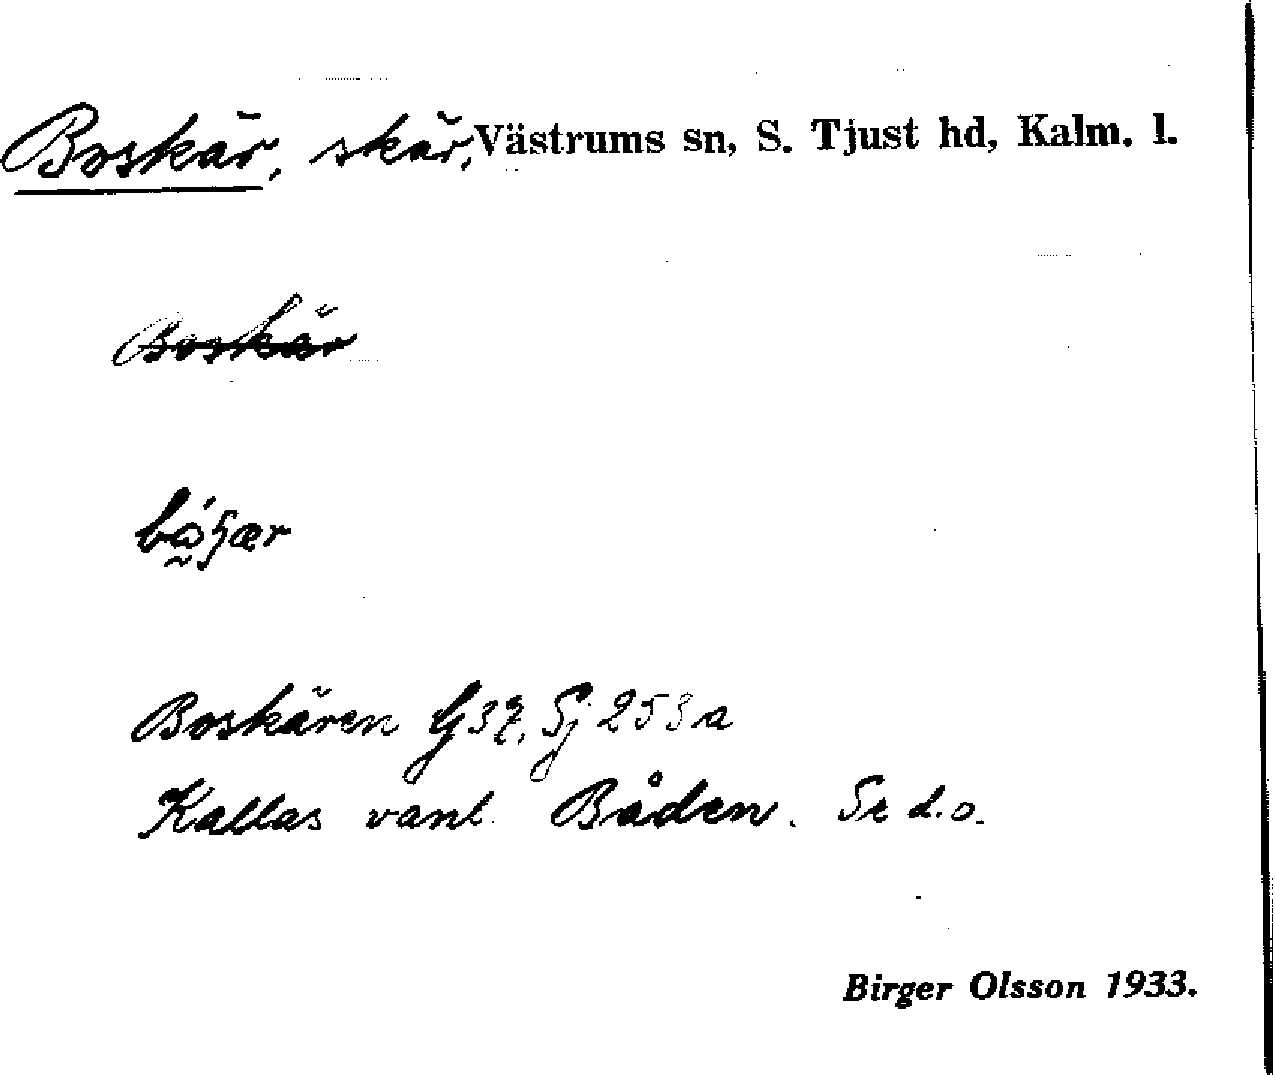 Boskär, skär, Västrums sn, S. Tjust hd, Kalm. l.
Boskär
Boskären G37, Sj 253a
Kallas vanl. Båden. Se d.o.
Birger Olsson 1933.